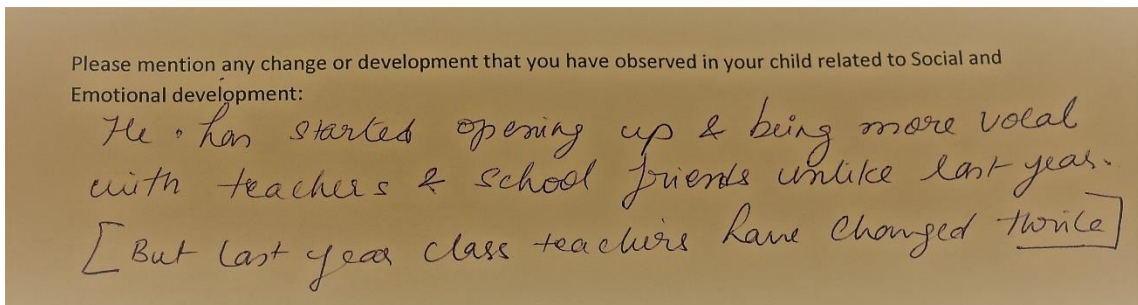 Please mention any change or development that you have observed in your child related to Social and
Emotional development:
He has started opening up & being more vocal
with teachers & school friends unlike last year.
[But last year class teachers have changed thrice]